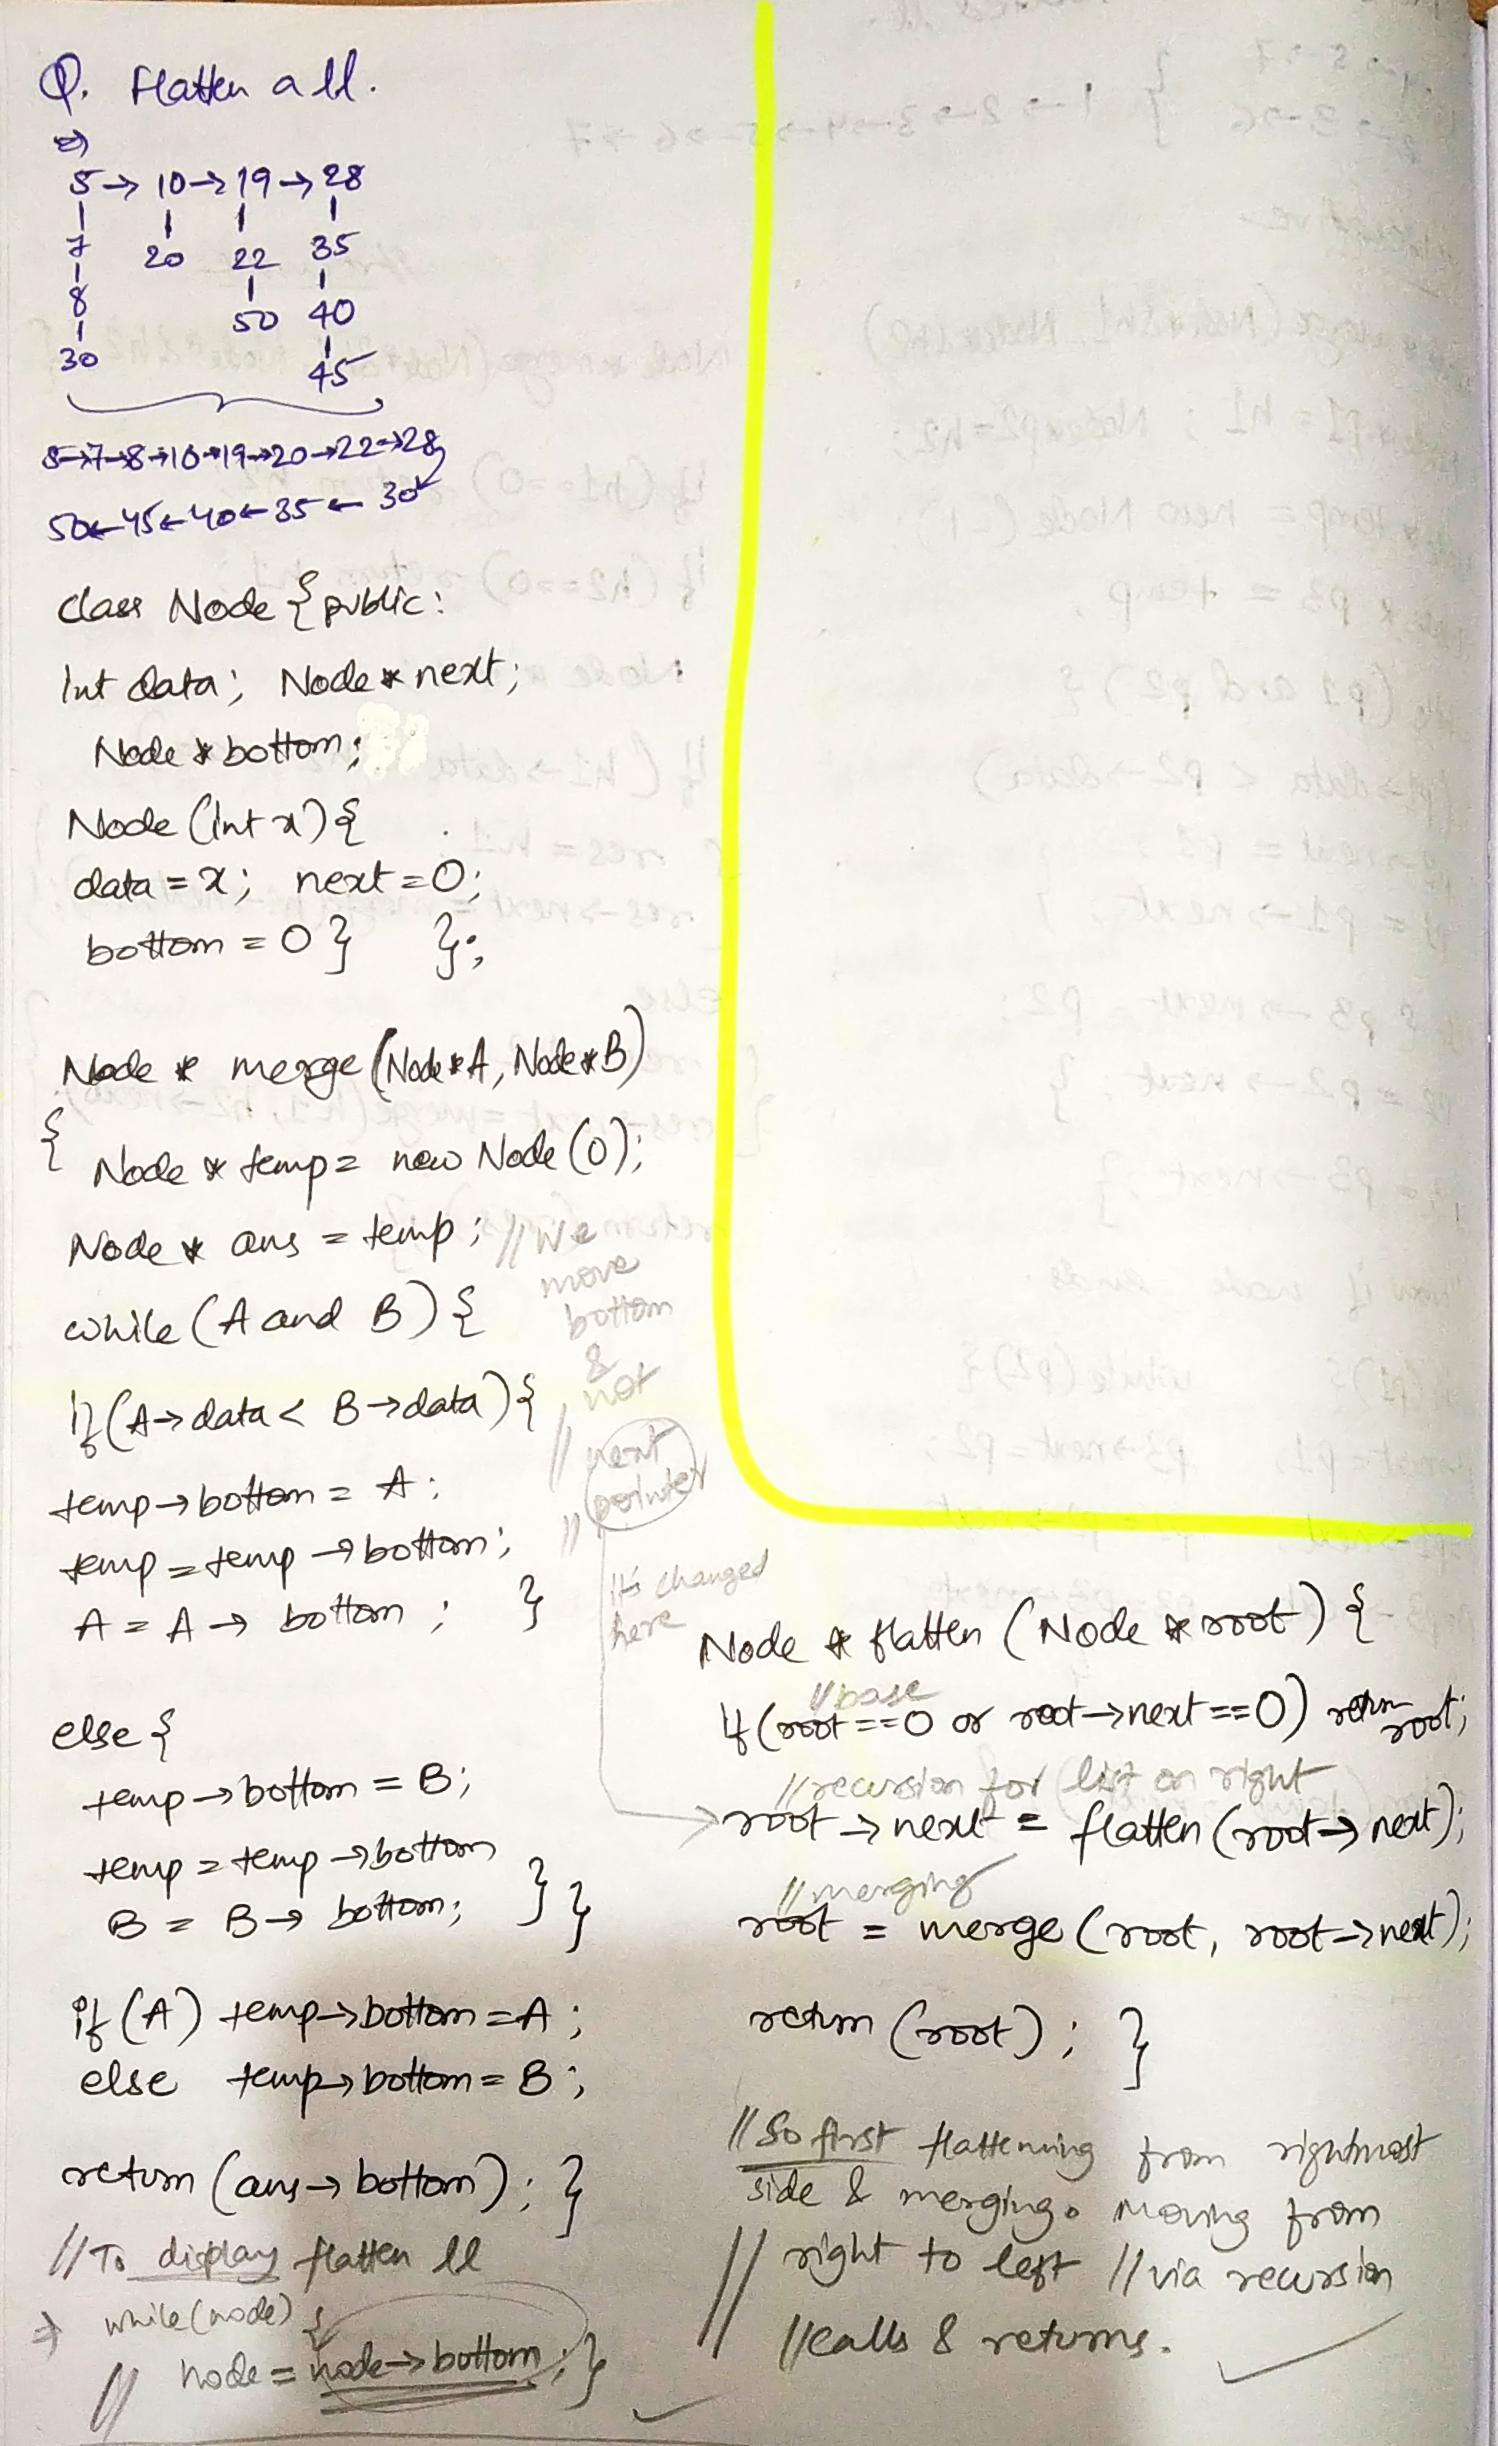 Q. Flatten a ll.
eg
5 → 10 → 19 → 28
7 20 22 35
8 50 40
30 45
5→7→8→10→19→20→22→28
50←45←40←35←30
class Node { public:
int data; Node * next;
Node * bottom;
Node (int x) {
data = x; next = 0;
bottom = 0 } };
Node * merge (Node * A, Node * B)
{
Node * temp = new Node (0);
Node * ans = temp; // We
move
bottom
&
not
// next
pointer
//
while (A and B) {
if (A → data < B → data) {
temp → bottom = A;
temp = temp → bottom;
A = A → bottom ; }
it's changed
here
else {
temp → bottom = B;
temp = temp → bottom
B = B → bottom; } }
if (A) temp → bottom = A ;
else temp → bottom = B ;
return (ans → bottom) ; }
// To display flatten ll
⇒ while (node) {
// node = node → bottom ; }
Node * flatten (Node * root) {
// base
if (root == 0 or root → next == 0) return root;
// recursion for list on right
root → next = flatten (root → next);
// merging
root = merge (root, root → next);
return (root) ; }
// So first flattening from rightmost
side & merging. Moving from
// right to left // via recursion
// calls & returns.